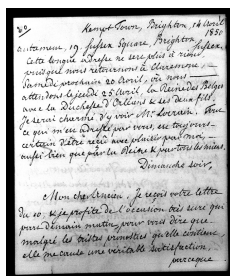 Kemp Town, Brighton, 14 Avril
1850
autrement, 19. Sussex Square, Brighton Sussex.
Cette longue adresse ne sera plus à rien
puisque nous retournons à Claremont
Samedi prochain 20 Avril, où nous
attendons le jeudi 25 Avril, la Reine des Belges
avec la Duchesse d'Orléans & ses deux fils.
Je serai charmé d'y voir Mr. Lorrain,
ce qui m'est adressé par vous, est toujours
certain d'être reçu avec plaisir par moi,
aussi bien que par la Reine & par tous les miens
Dimanche soir,
Mon cher Ami, Je reçois votre lettre
du 10, & je profite de l'occasion
pour demain matin, pour vous dire que
malgré les tristes pronostics qu'elle contient
elle me cause une véritable satisfaction,
parceque